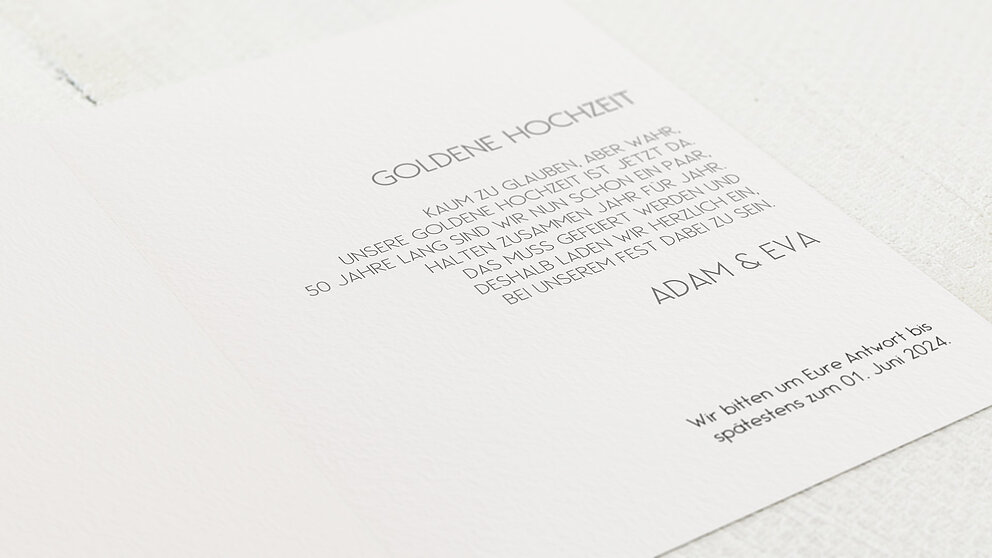 GOLDENE HOCHZEIT
KAUM ZU GLAUBEN, ABER WAHR,
UNSERE GOLDENE HOCHZEIT IST JETZT DA.
50 JAHRE LANG SIND WIR NUN SCHON EIN PAAR,
HALTEN ZUSAMMEN JAHR FÜR JAHR.
DAS MUSS GEFEIERT WERDEN UND
DESHALB LADEN WIR HERZLICH EIN,
BEI UNSEREM FEST DABEI ZU SEIN.
ADAM & EVA
Wir bitten um Eure Antwort bis
spätestens zum 01. Juni 2024.